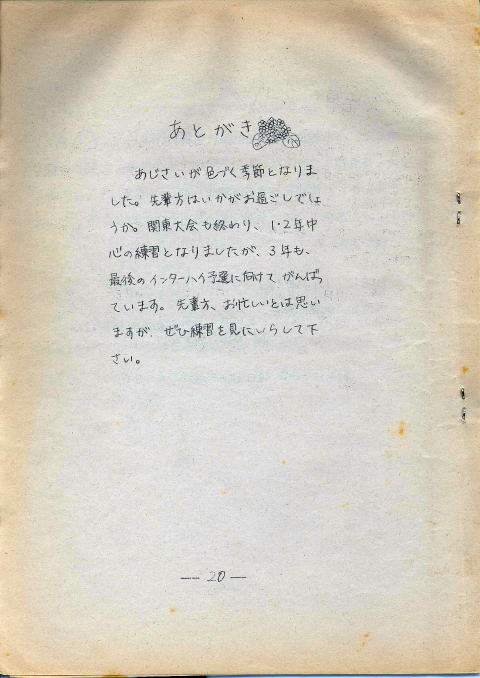 あとがき
あじさいが色づく季節となりま
した。先輩方はいかがお過ごしでしょ
うか。関東大会も終わり、1・2年中
心の練習となりましたが、3年も、
最後のインターハイ予選に向けてがんばっ
ています。先輩方、お忙しいとは思い
ますが、ぜひ練習を見にいらして下
さい。
— 20 —